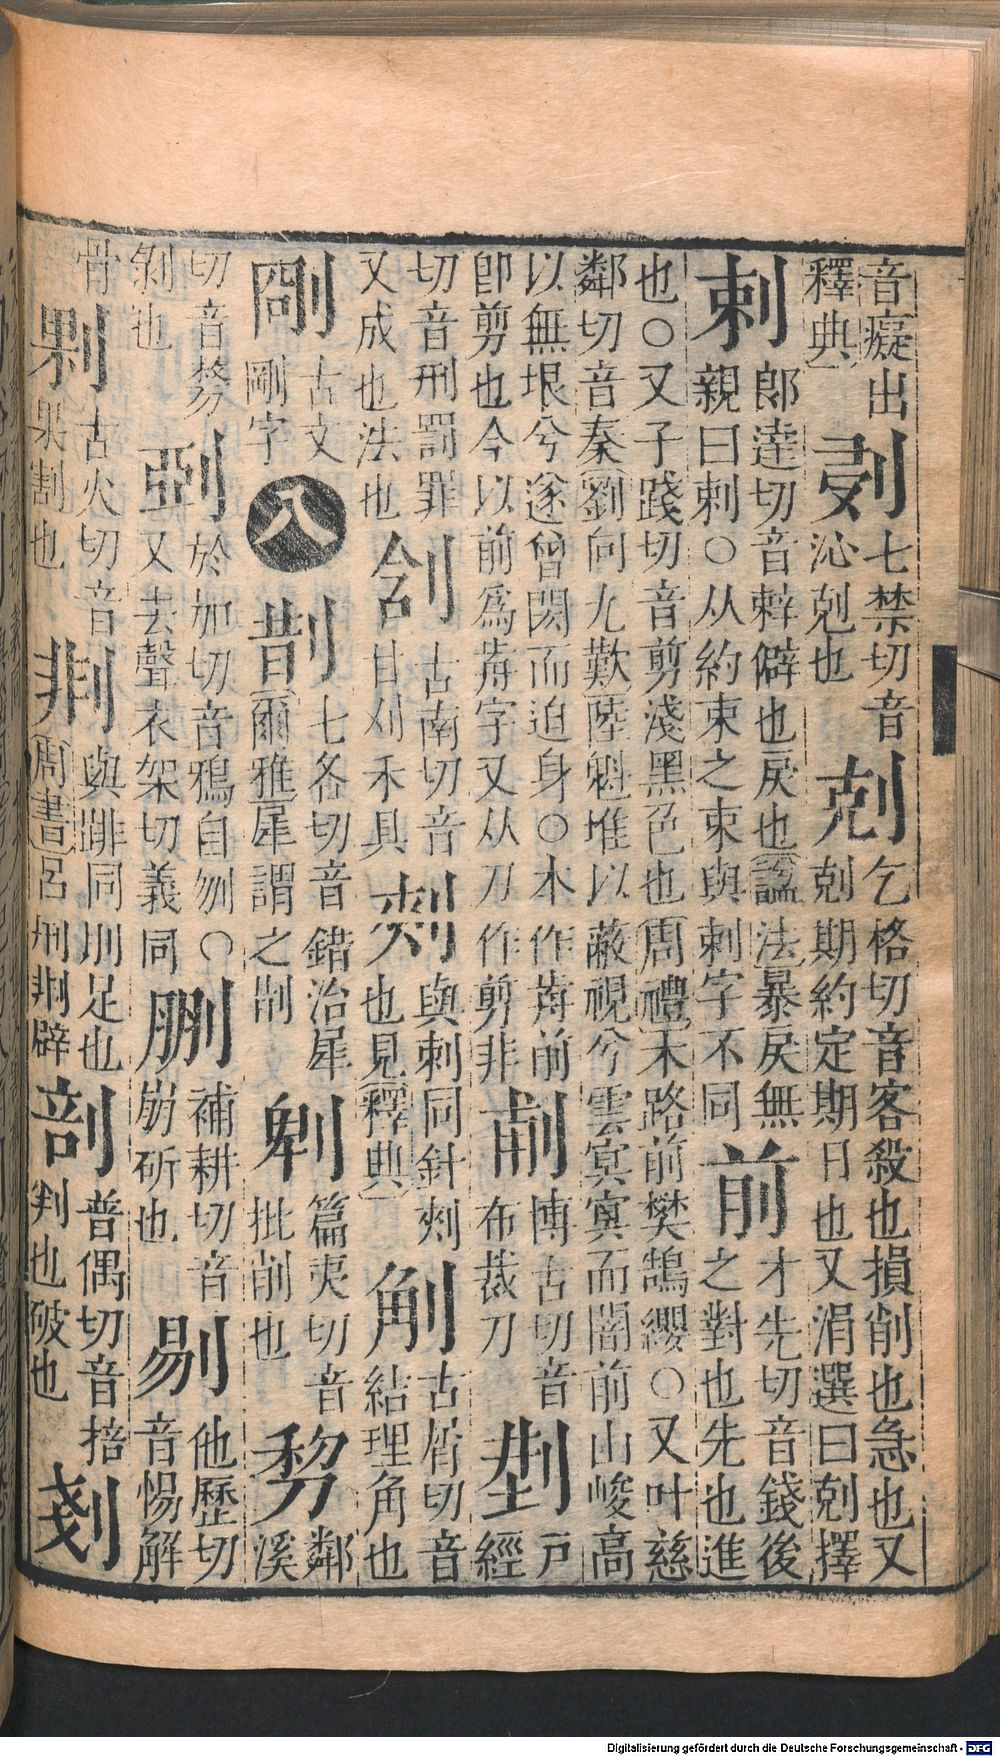 音癡出釋典 㓎 七禁切音沁剋也 剋 乞格切音客殺也損削也急也又剋期約定期日也又涓選曰剋擇
剌 郎達切音辢僻也戾也諡法暴戾無親曰剌○从約束之束與刺字不同 前 才先切音錢後之對也先也進
也○又子踐切音剪淺黑色也周禮木路前樊鵠纓○又叶慈鄰切音秦劉向九歎陸魁堆以蔽視兮雲冥冥而闇前山峻高
以無垠兮遂曾閎而迫身○本作歬前卽剪也今以前爲歬字又从刀作剪非 㓡 博古切音布裁刀 㓝 戸經
切音刑罰罪又成也法也 㓧 古南切音甘刈禾具 刾 與刺同針刺也見釋典 古屑切音結理角也
古文剛字 八 剒 七各切音錯治犀爾雅犀謂之剒 篇夷切音批削也 鄰溪
切音剝也 於加切音鴉自刎○又去聲衣架切義同 補耕切音崩斫也 剔 他歷切音惕解
骨 古火切音果割也 剕 與跰同刖足也周書呂刑剕辟 剖 普偶切音掊判也破也 剗
Digitalisierung gefördert durch die Deutsche Forschungsgemeinschaft - DFG